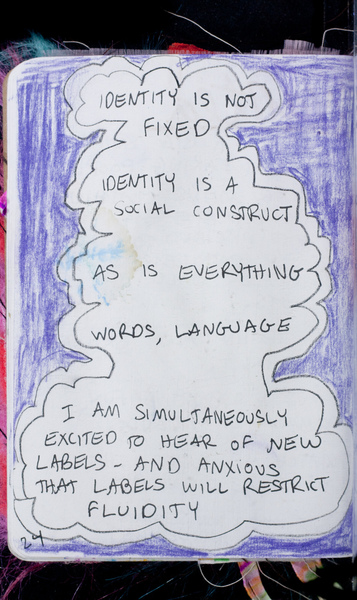 IDENTITY IS NOT
FIXED
IDENTITY IS A
SOCIAL CONSTRUCT
AS IS EVERYTHING
WORDS, LANGUAGE
I AM SIMULTANEOUSLY
EXCITED TO HEAR OF NEW
LABELS - AND ANXIOUS
THAT LABELS WILL RESTRICT
FLUIDITY
24